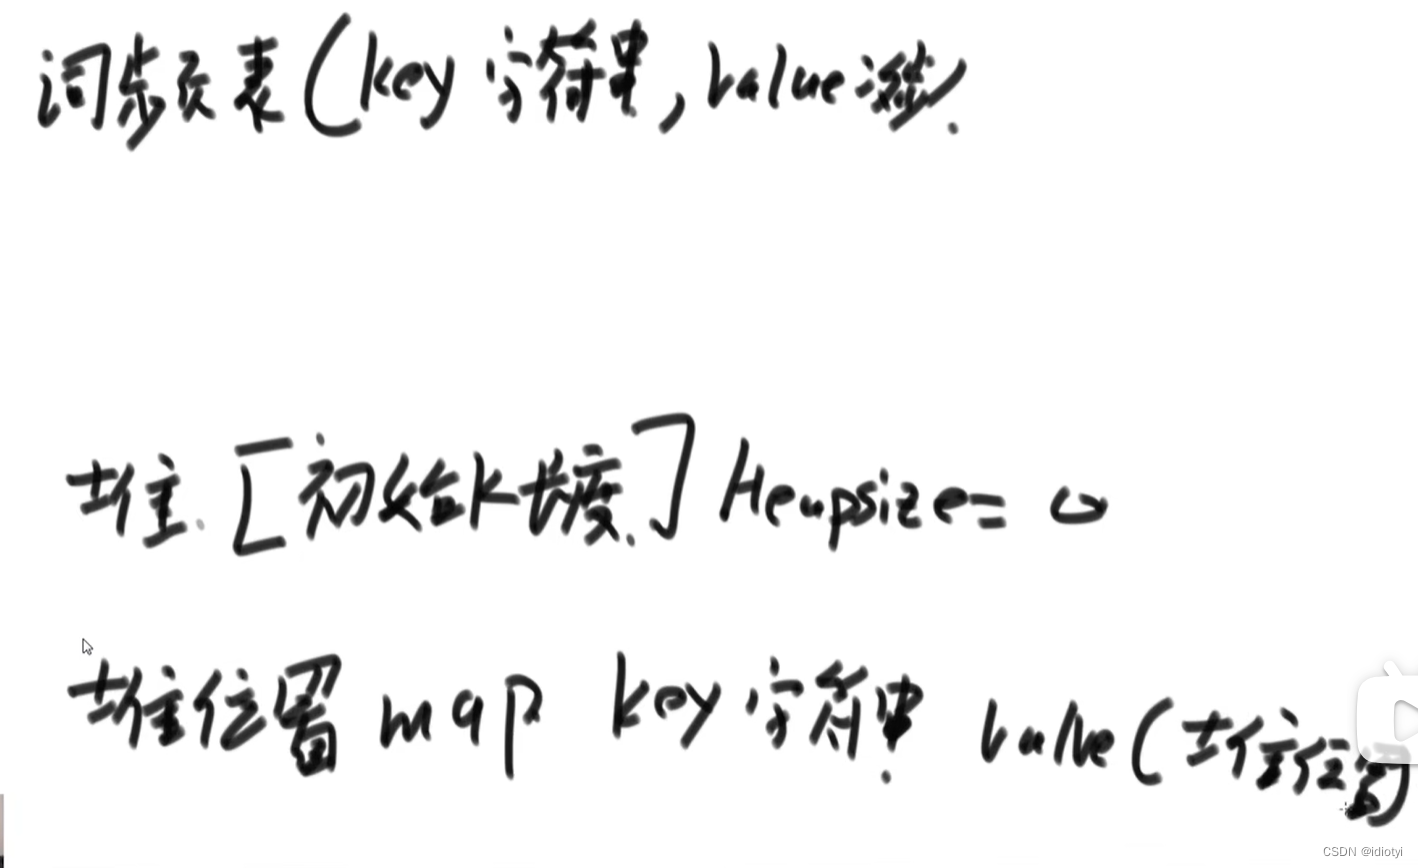 词频表(key字符串,value词频.
堆.[初始长度.]Heapsize=0
堆位置map key字符串. value(堆位置)
CSDN @idiotyi